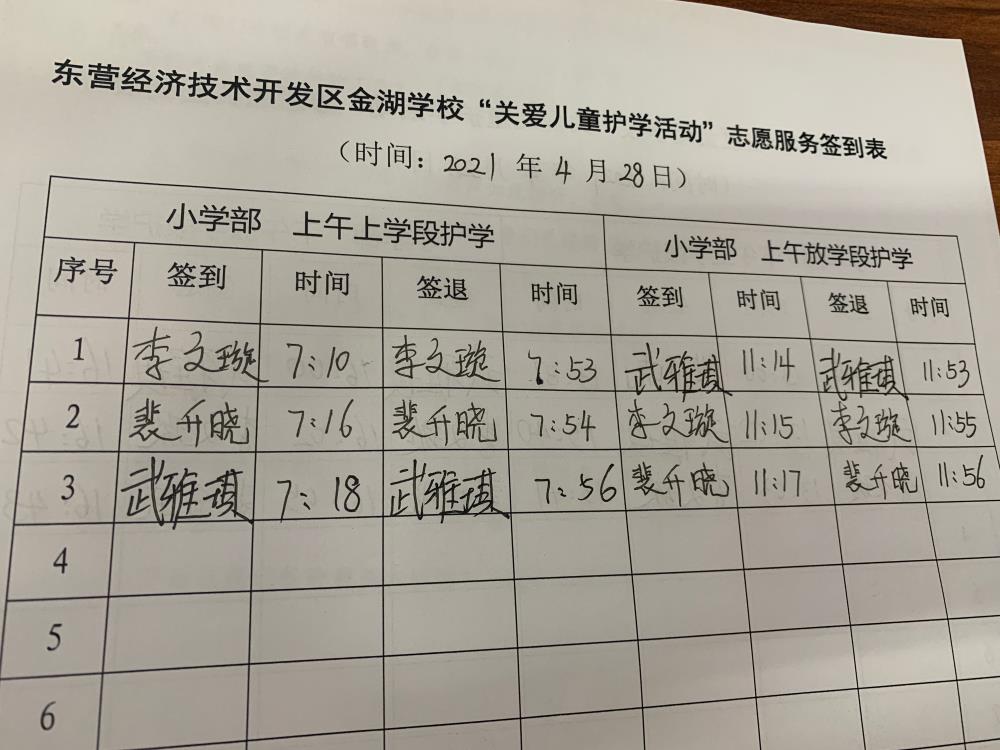 东营经济技术开发区金湖学校“关爱儿童护学活动”志愿服务签到表
（时间：2021 年 4 月 28日）
小学部 上午上学段护学 小学部 上午放学段护学
序号 签到 时间 签退 时间 签到 时间 签退 时间
1 李文璇 7:10 李文璇 7:53 武雅琪 11:14 武雅琪 11:53
2 裴升晓 7:16 裴升晓 7:54 李文璇 11:15 李文璇 11:55
3 武雅琪 7:18 武雅琪 7:56 裴升晓 11:17 裴升晓 11:56
4
5
6